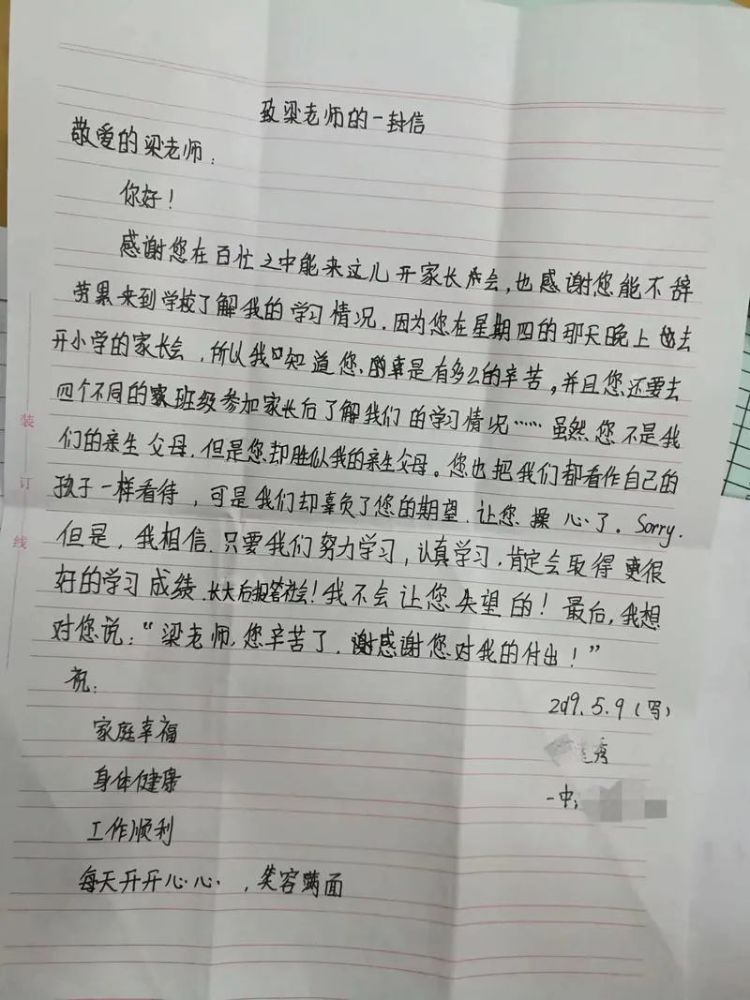 致梁老师的一封信
敬爱的梁老师：
你好！
感谢您在百忙之中能来这儿开家长会，也感谢您能不辞
劳累来到学校了解我的学习情况．因为您在星期四的那天晚上 去
开小学的家长会，所以我知道您 是有多么的辛苦，并且您还要去
四个不同的班级参加家长后了解我们的学习情况……虽然您不是我
们的亲生父母，但是您却胜似我的亲生父母。您也把我们都看作自己的
孩子一样看待，可是我们却辜负了您的期望，让您操心了。Sorry.
但是，我相信，只要我们努力学习，认真学习，肯定会取得更很
好的学习成绩，长大后报答社会！我不会让您失望的！最后，我想
对您说：“梁老师，您辛苦了，感谢您对我的付出！”
祝：
2019.5.9（写）
家庭幸福
秀
身体健康
一中：
工作顺利
每天开开心心，笑容满面
装
订
线